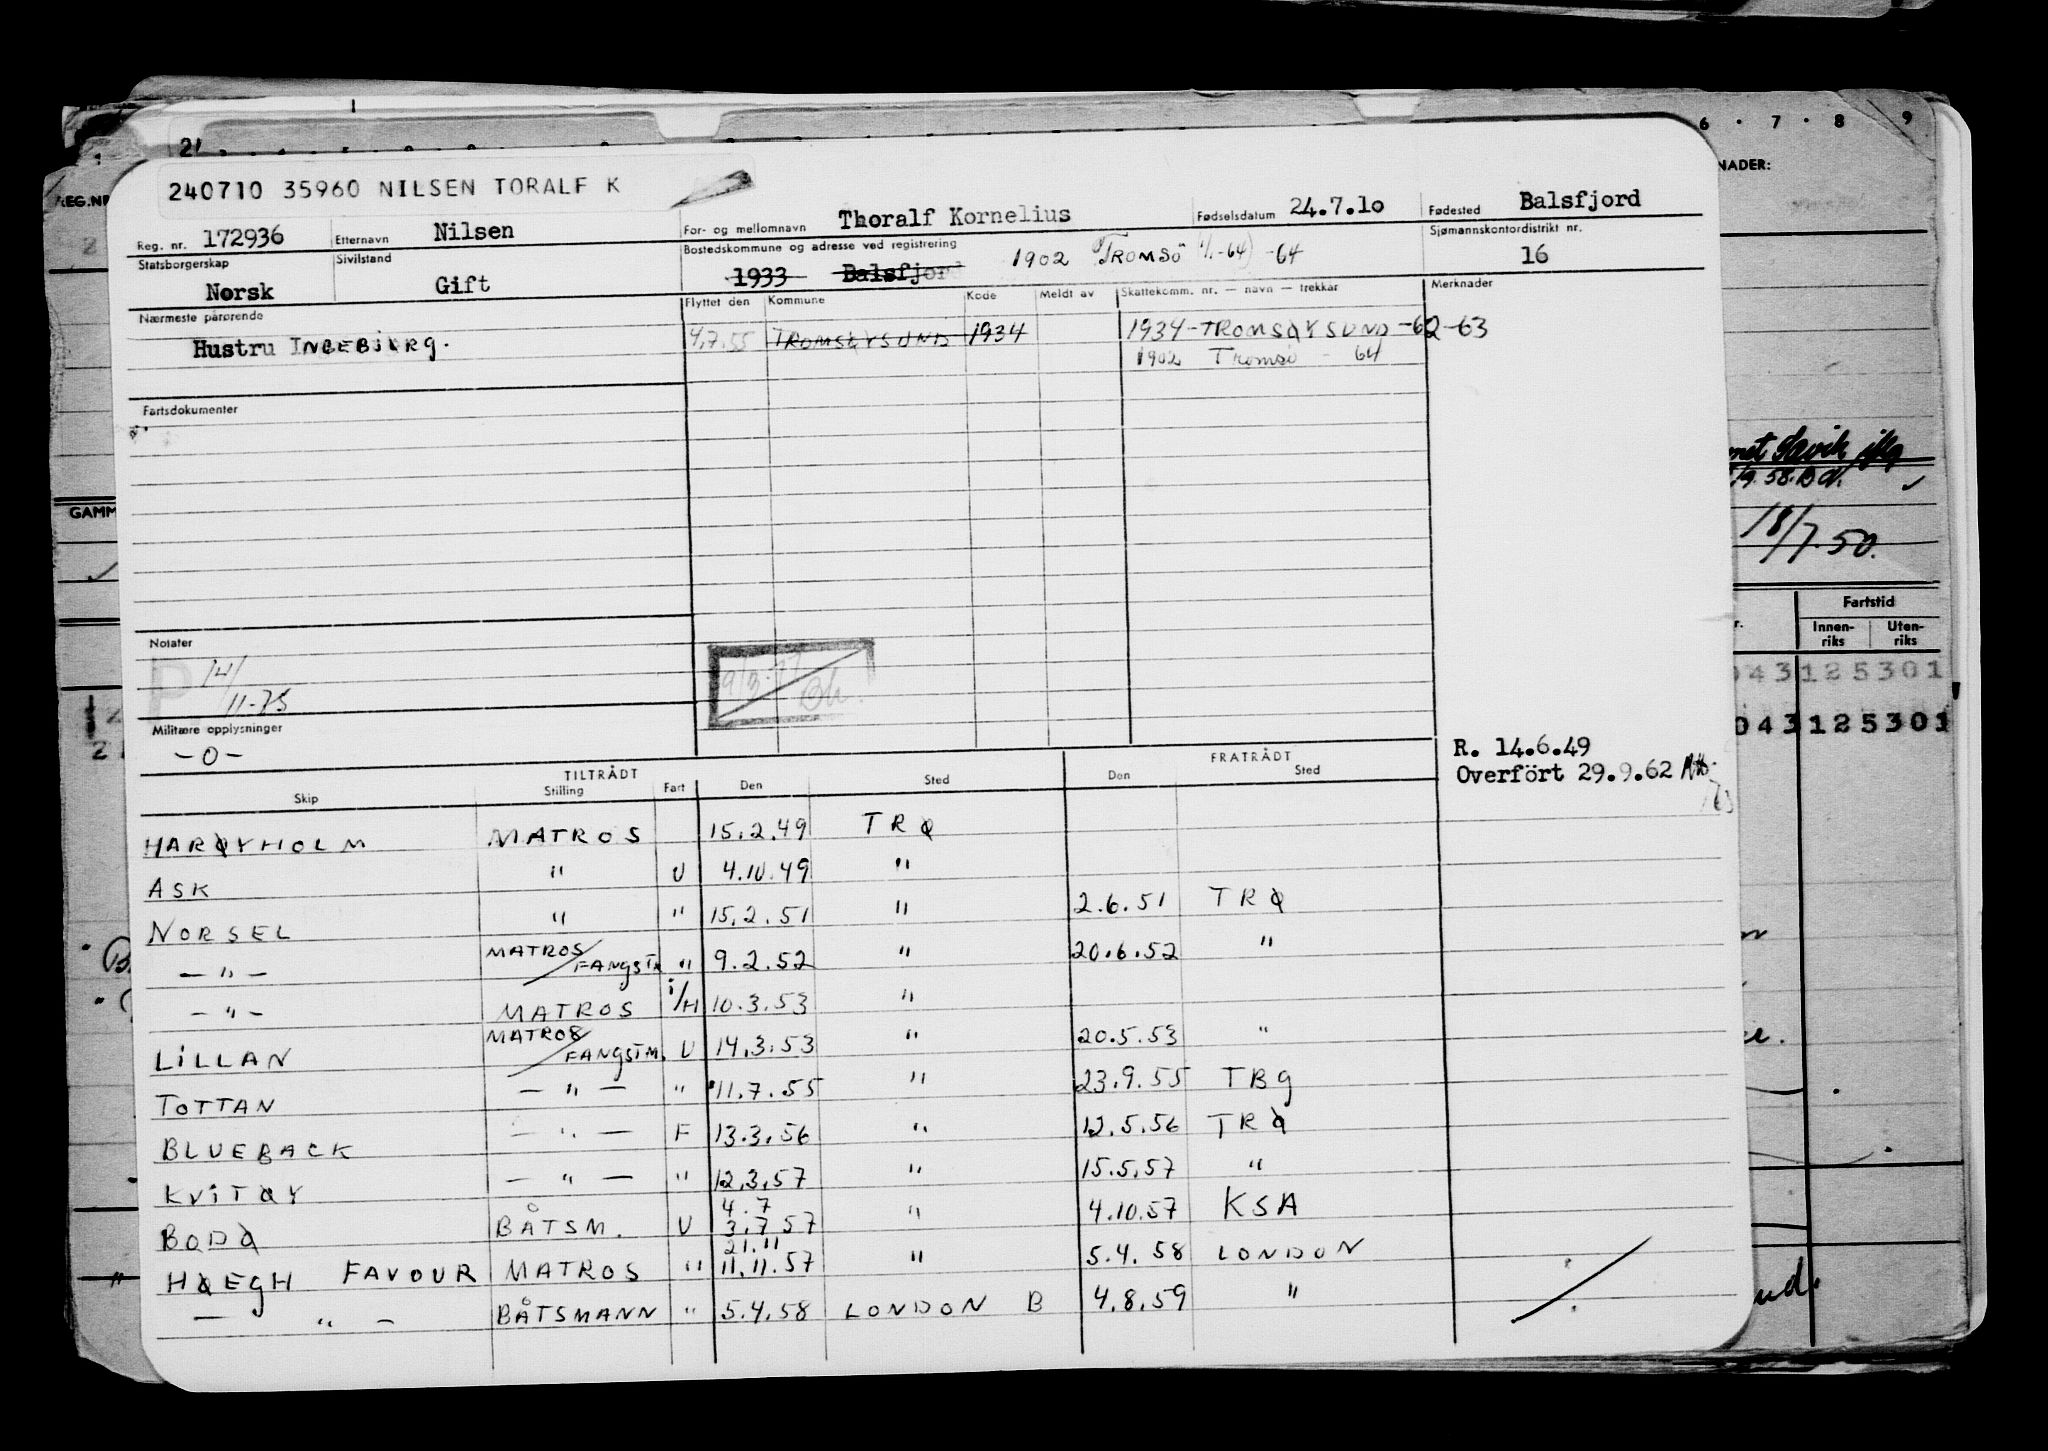 240710 35960 NILSEN TORALF K
Reg. nr. 172936 Etternavn Nilsen For- og mellomnavn Thoralf Kornelius Fødselsdatum 24.7.10 Fødested Balsfjord
Statsborgerskap Norsk Sivilstand Gift Bostedskommune og adresse ved registrering 1933 Balsfjord 1902 TROMSÖ -64 Sjømannskontordistrikt nr. 16
Nærmeste pårørende Flyttet den Kommune Kode Meldt av Skattekomm. nr. — navn — trekkår Merknader
Hustru INGEBJØRG. 4.7.55 TROMSØYSUND 1934 1934-TROMSØYSUND -62-63
1902 Tromsö - 64
Fartsdokumenter
Notater
P 14/
11-75
Militære opplysninger
-0-
R. 14.6.49
Overfört 29.9.62
TILTRÅDT FRATRÅDT
Skip Stilling Fart Den Sted Den Sted
HARØYHOLM MATROS 15.2.49 TRØ
ASK " U 4.10.49 "
NORSEL " " 15.2.51 " 2.6.51 TRØ
— " — MATROS/FANGSTM " 9.2.52 " 20.6.52 "
— " — MATROS i/H 10.3.53 "
LILLAN MATROS/FANGSTM. U 14.3.53 " 20.5.53 "
TOTTAN — " — " 11.7.55 " 23.9.55 TBG
BLUEBACK — " — F 13.3.56 " 12.5.56 TRØ
KVITØY — " — " 12.3.57 " 15.5.57 "
BODØ BÅTSM. U 4.7 3.7.57 " 4.10.57 KSA
HØEGH FAVOUR MATROS " 21.11 11.11.57 " 5.4.58 LONDON
— " — BÅTSMANN " 5.4.58 LONDON B 4.8.59 "
6 . 7 . 8 9
NADER:
REG.NR
GAMM
/9.58.
18/7.50.
Fartstid
Innen-
riks
Uten-
riks
043125301
043125301